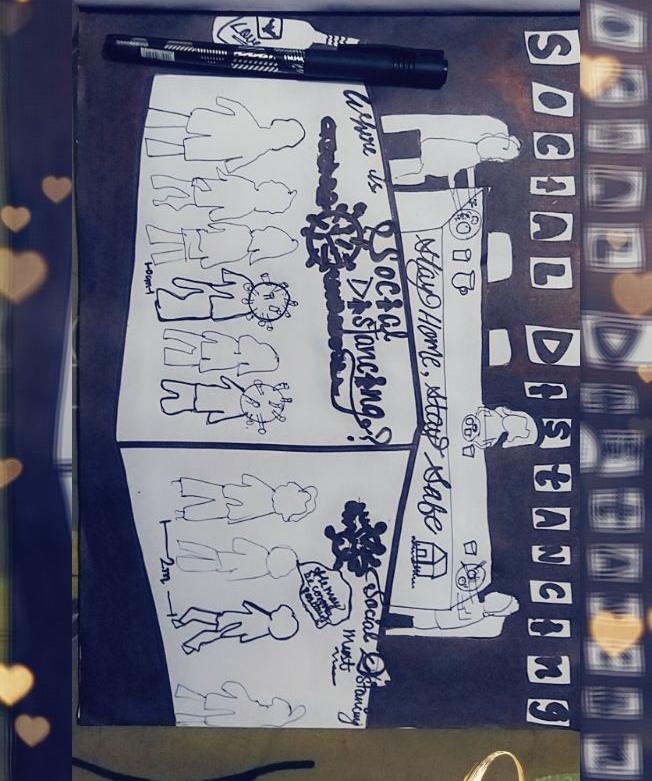 SOCIAL DIStANCINg
Stay Home, stay Safe
Where is
Social
Distancing?
Social Distancing
Must
2m
Love